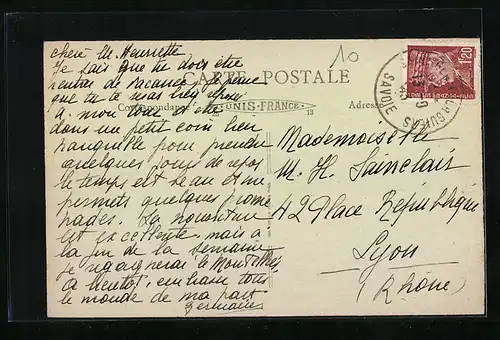 10
chère M. Henriette
Je sais que tu dois être
rentrée de vacances. Je pense
que tu te seras bien reposé
A mon tour et été
dans un petit coin bien
tranquille pour prendre
quelques jours de repos
le temps est beau et me
permets quelques prome
nades. La nourriture
est excellente, mais a
la fin de la semaine
je regagnerai le
A bientôt, embrasse tous
le monde de ma part
Germaine
CARTE POSTALE
Correspondance
Adresse
UNIS-FRANCE
13
Mademoiselle
M. H. Sainclair
42 Place République
Lyon
(Rhône)
1,20
SAVOIE